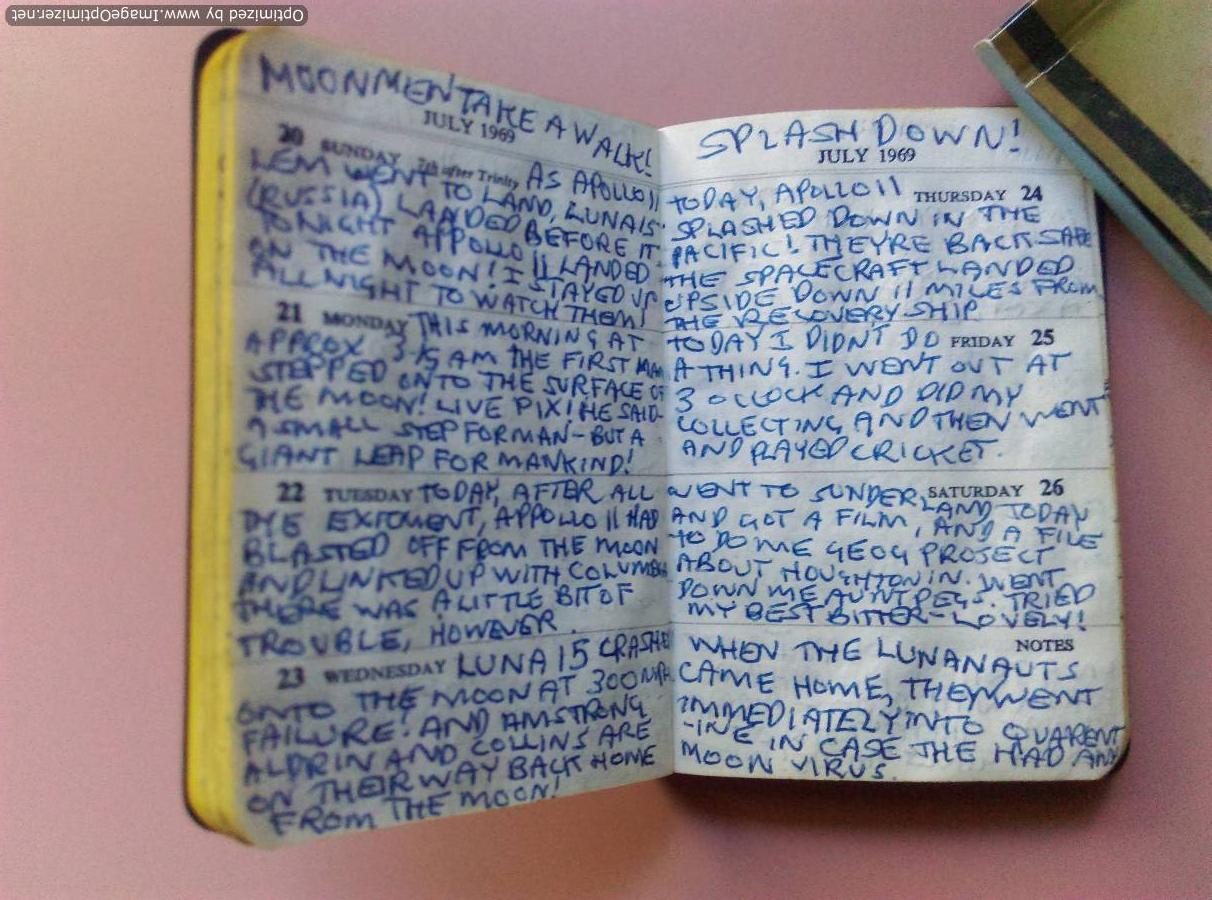 Optimized by www.ImageOptimizer.net
MOONMEN TAKE A WALK!
JULY 1969
20 SUNDAY 7th after Trinity AS APOLLO 11
LEM WENT TO LAND, LUNA 15
(RUSSIA) LANDED BEFORE IT.
TONIGHT APPOLLO 11 LANDED
ON THE MOON! I STAYED UP
ALL NIGHT TO WATCH THEM!
21 MONDAY THIS MORNING AT
APPROX 3.15 AM THE FIRST MAN
STEPPED ONTO THE SURFACE OF
THE MOON! LIVE PIX! HE SAID-
A SMALL STEP FOR MAN - BUT A
GIANT LEAP FOR MANKIND!
22 TUESDAY TODAY, AFTER ALL
EXITCMENT, APPOLLO 11 HAD
BLASTED OFF FROM THE MOON
AND LINKED UP WITH COLUMBIA
THERE WAS A LITTLE BIT OF
TROUBLE, HOWEVER.
23 WEDNESDAY LUNA 15 CRASHED
ONTO THE MOON AT 300 MPH
FAILURE! AND AMSTRONG
ALDRIN AND COLLINS ARE
ON THEIR WAY BACK HOME
FROM THE MOON!
SPLASH DOWN!
JULY 1969
TODAY, APOLLO 11 THURSDAY 24
SPLASHED DOWN IN THE
PACIFIC! THEYRE BACK SAFE
THE SPACECRAFT LANDED
UPSIDE DOWN 11 MILES FROM
THE RECOVERY SHIP
TODAY I DIDN'T DO FRIDAY 25
A THING. I WENT OUT AT
3 OCLOCK AND DID MY
COLLECTING AND THEN WENT
AND PLAYED CRICKET.
WENT TO SUNDERLAND TODAY SATURDAY 26
AND GOT A FILM, AND A FILE
TO DO ME GEOG PROJECT
ABOUT HOUGHTON IN. WENT
DOWN ME AUNT PEGS. TRIED
MY BEST BITTER - LOVELY!
NOTES
WHEN THE LUNANAUTS
CAME HOME, THEY WENT
IMMEDIATELY INTO QUARENT
-INE IN CASE THE HAD ANY
MOON VIRUS.